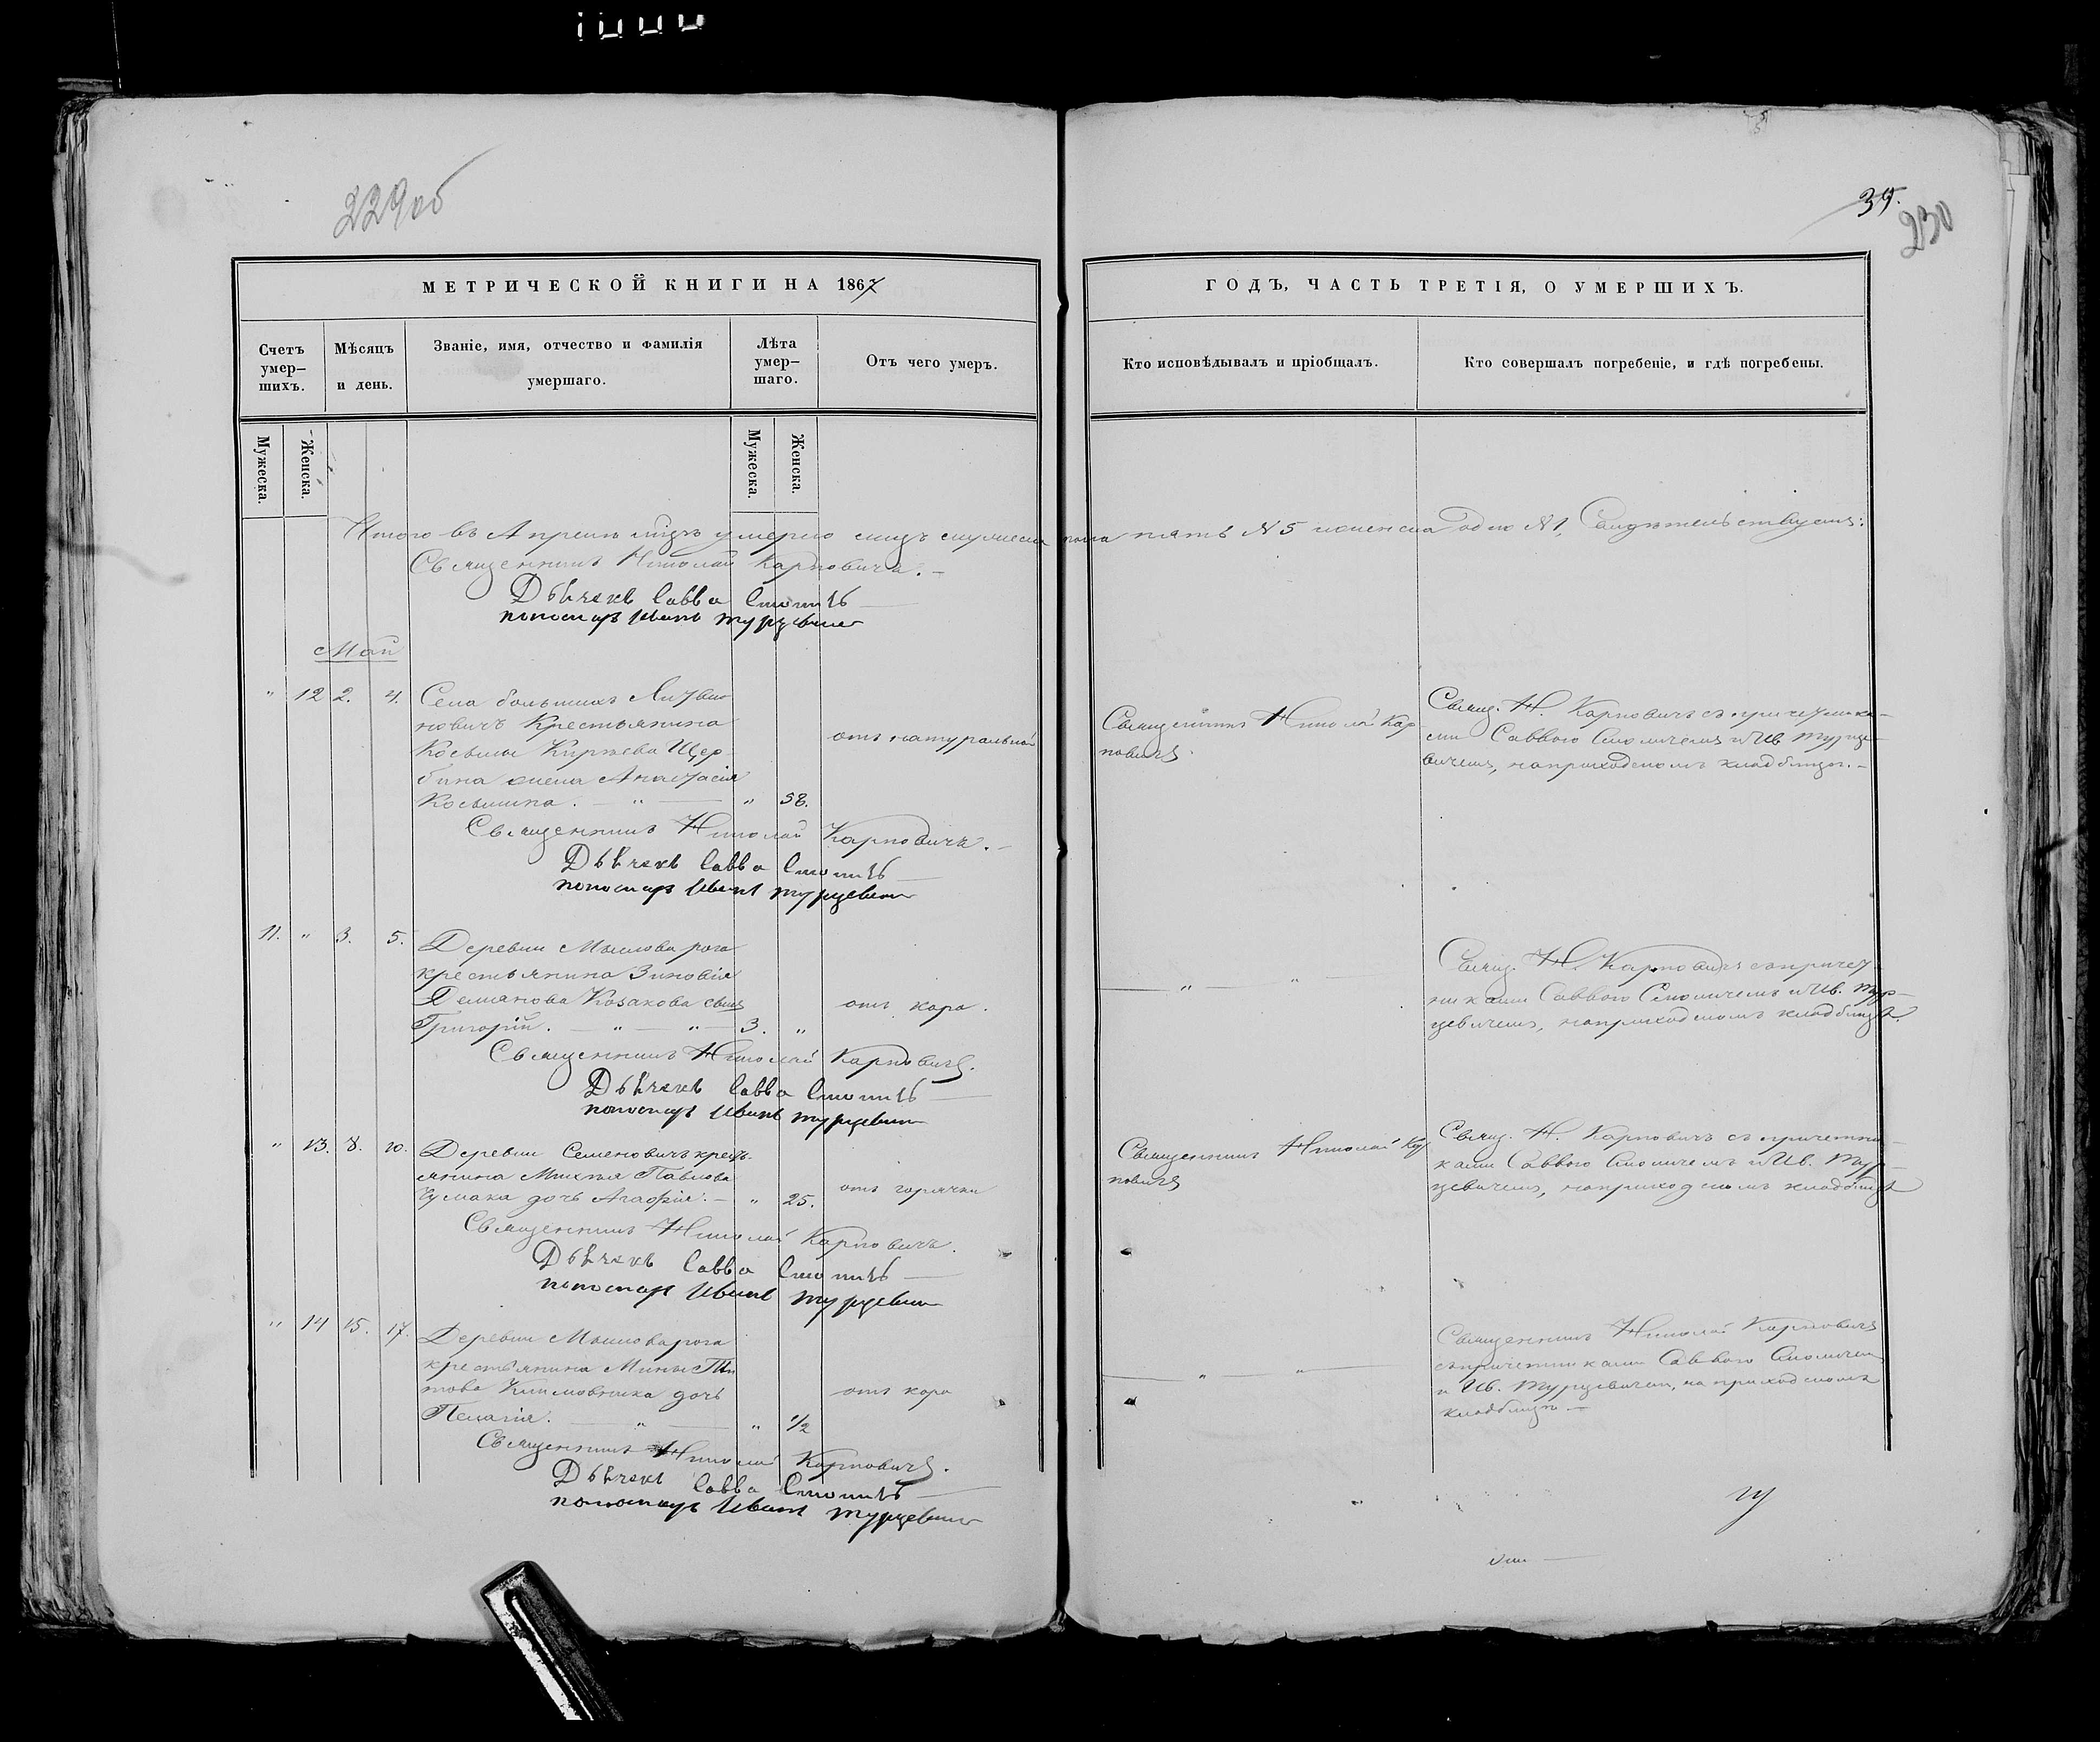 229об
39.
230
МЕТРИЧЕСКОЙ КНИГИ НА 1867
ГОДЪ, ЧАСТЬ ТРЕТІЯ, О УМЕРШИХЪ.
Счетъ умер-
шихъ.
Мѣсяцъ
и день.
Званіе, имя, отчество и фамилія
умершаго.
Лѣта
умер-
шаго.
Отъ чего умеръ.
Кто исповѣдывалъ и пріобщалъ.
Кто совершалъ погребеніе, и гдѣ погребены.
Мужеска.
Женска.
Мужеска.
Женска.
Итого въ Апрелѣ мцѣ умерло лицъ мужеска пола пять №5 женска одно №1, Свидѣтельствуемъ:
Священникъ Николай Карповичъ.
Дьячекъ Савва Смоличъ
пономарь Иванъ Турцевичъ
Май
" 12 2. 4. Села большихъ Литви-
новичъ Крестьянина
Косьмы Щер-
бина жена Анастасія
Косьмина. " " 58.
отъ натуральной
Священникъ Николай Кар-
повичъ.
Свящ. Н. Карповичъ съ причетника-
ми Саввою Смоличемъ и Ив. Турце-
вичемъ, на приходскомъ кладбищѣ.
Священникъ Николай Карповичъ.
Дьячекъ Савва Смоличъ
пономарь Иванъ Турцевичъ
11. " 3. 5. Деревни Мыслова рога
крестьянина Зиновія
Демьянова Козакова сынъ
Григорій. " " 3. "
отъ кора.
" "
Свящ. Н. Карповичъ съ причет-
никами Саввою Смоличемъ и Ив. Тур-
цевичемъ, на приходскомъ кладбищѣ.
Священникъ Николай Карповичъ.
Дьячекъ Савва Смоличъ
пономарь Иванъ Турцевичъ
" 13. 8. 10. Деревни Семеновичъ крест-
янина Михея Павлова
Чумака дочь Агафія. " 25.
отъ горячки
Священникъ Николай Кар-
повичъ
Свящ. Н. Карповичъ съ причетни-
ками Саввою Смоличемъ и Ив. Тур-
цевичемъ, на приходскомъ кладбищѣ
Священникъ Николай Карповичъ.
Дьячекъ Савва Смоличъ
пономарь Иванъ Турцевичъ
" 14 15. 17. Деревни Мыслова рога
крестьянина Мины Ти-
това Климовника дочь
Пелагія. " " 1/2
отъ кора
" "
Священникъ Николай Карповичъ
съ причетниками Саввою Смоличемъ
и Ив. Турцевичемъ, на приходскомъ
кладбищѣ.
Священникъ Николай Карповичъ.
Дьячекъ Савва Смоличъ
пономарь Иванъ Турцевичъ